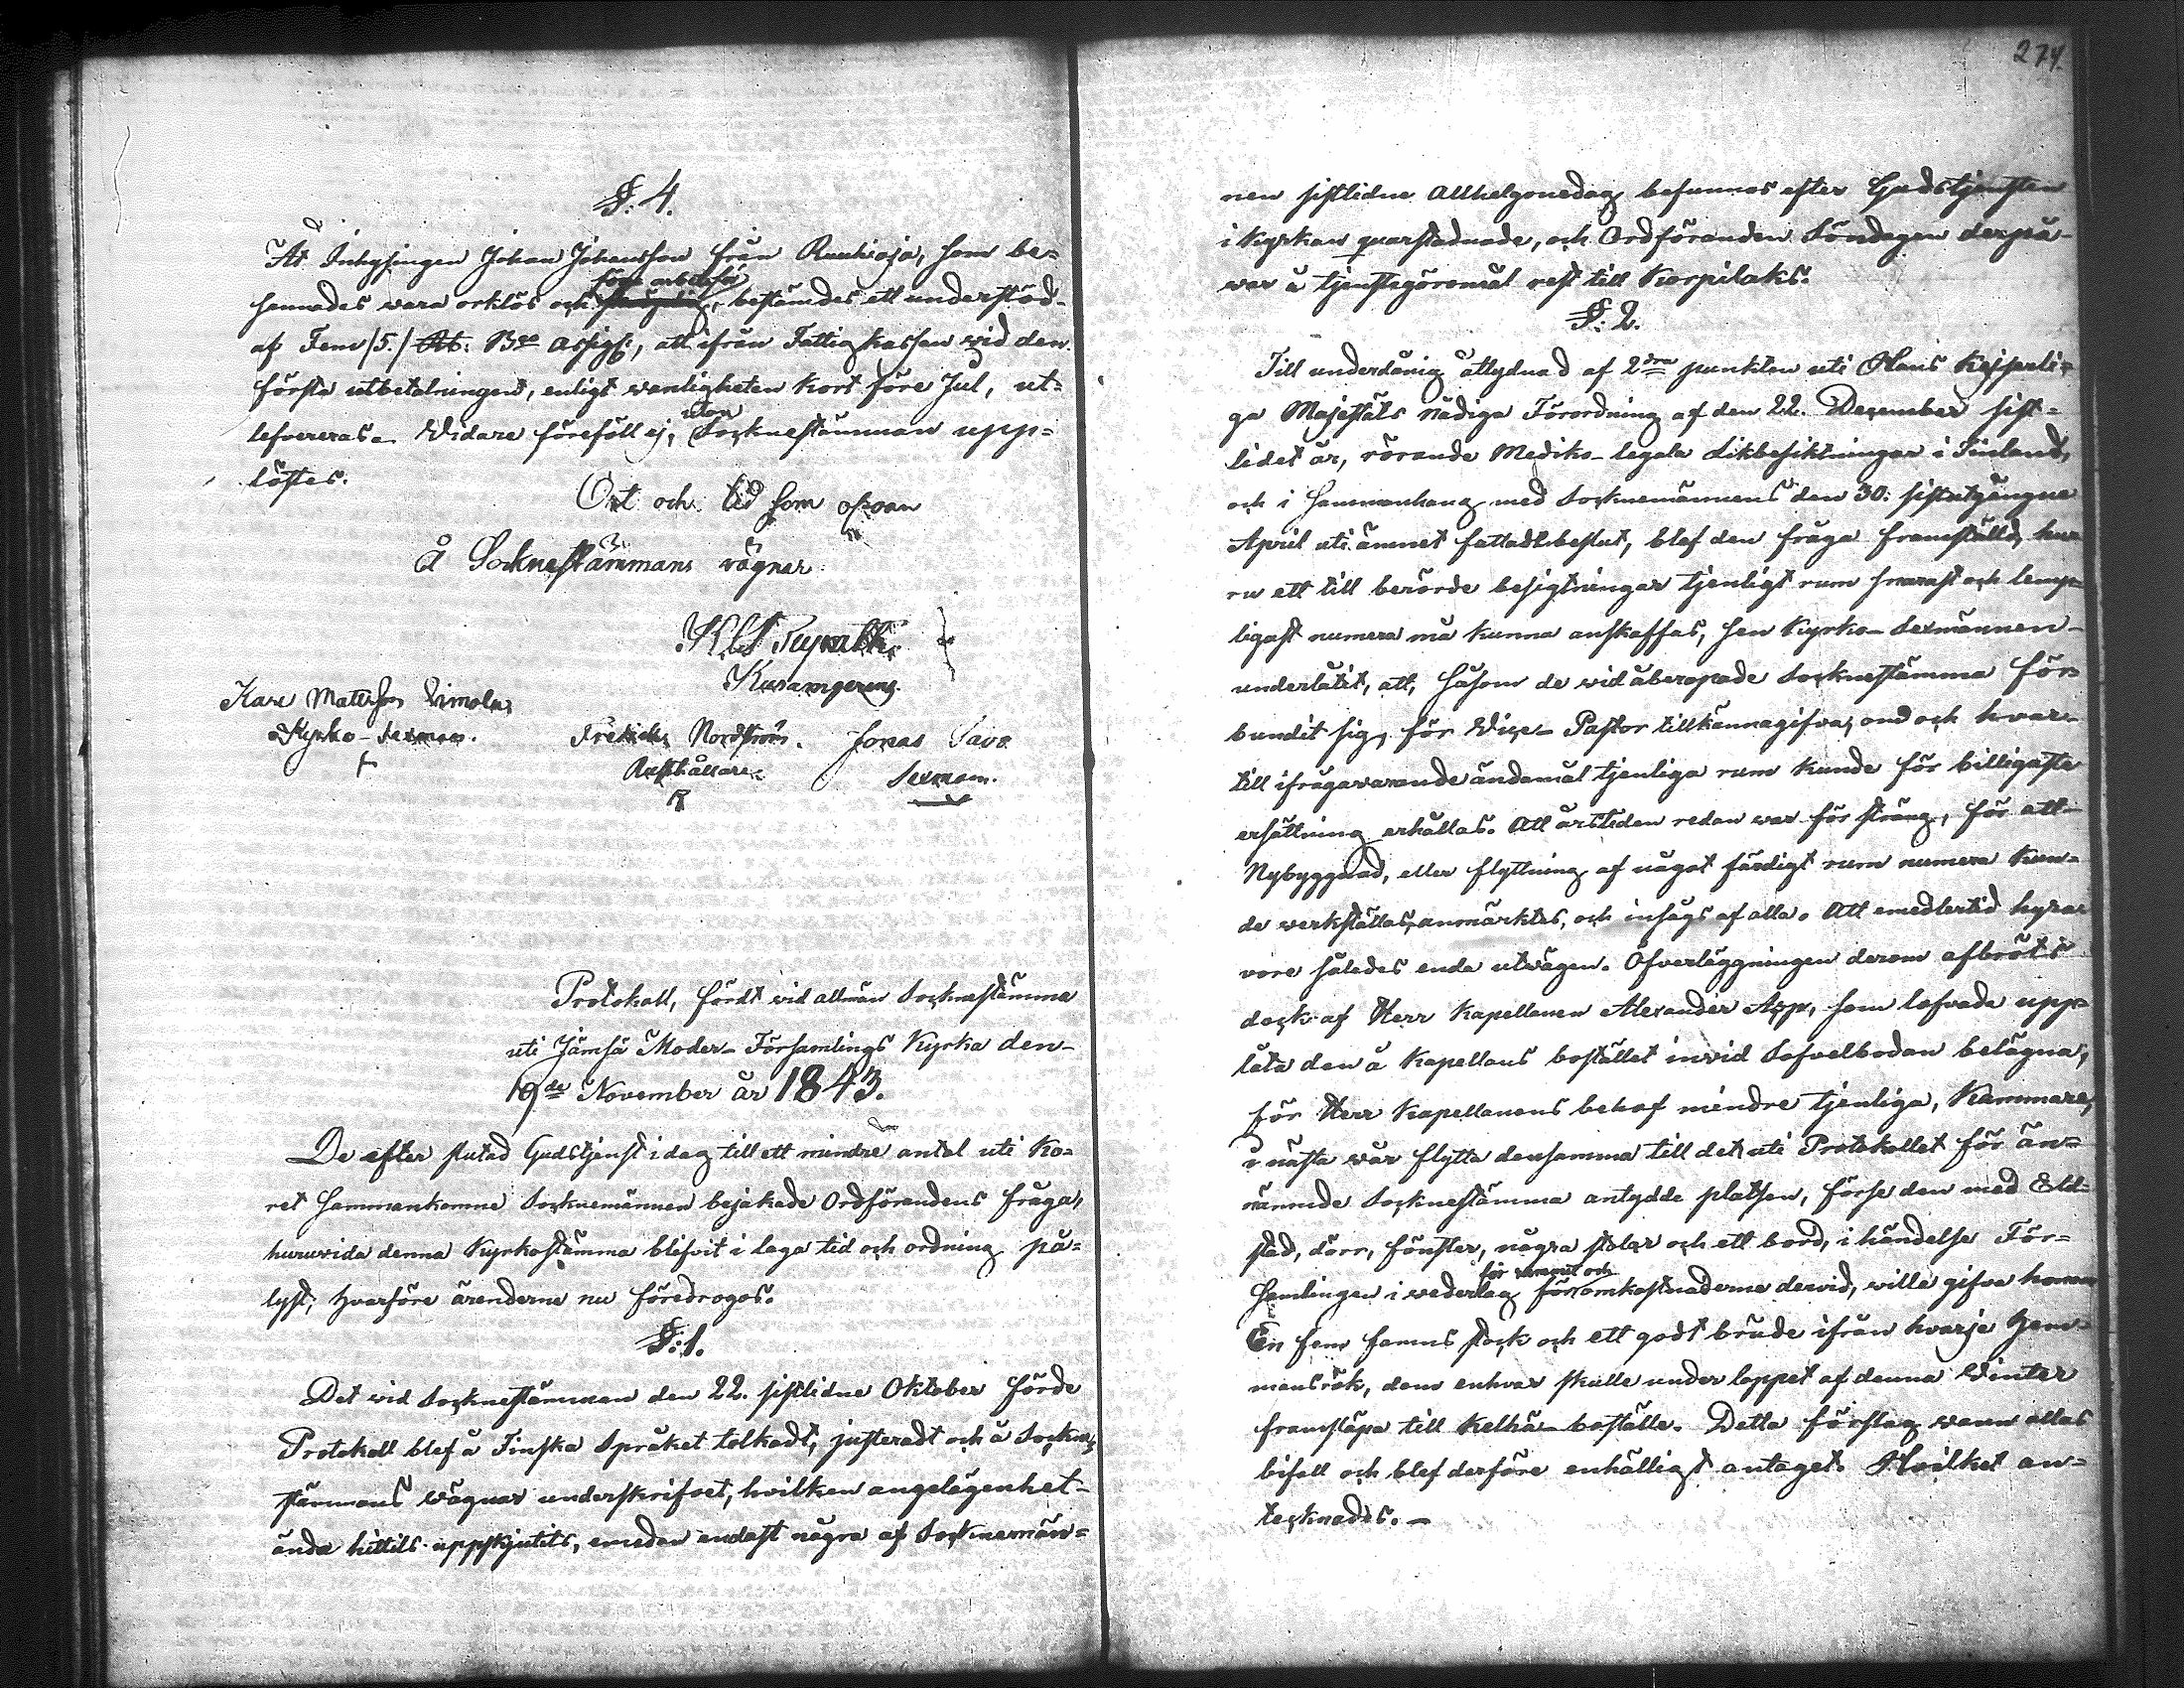 §: 4.
Åt Inhysingen Johan Johansson från Ruuhioja, som be-
fennades vara orklös och föga arbetsför, bestämdes ett understöd
af Fem /5./ Rb: Bco Assig:, att ifrån Fattigkassan vid den
första utbetalningen, enligt vanligheten kort före Jul, ut-
lefvereras. Vidare föreföll ej, utan Sockenstämman upp-
löstes.
Ort och tid som ofvan
Å Sockneståmmans vägnar
Karl Mattsson
Kyrko-Sexman.
Fredrik Nordström.
Rusthållare
Jonas Savo
Sexman.
Protokoll, fördt vid allmän Socknestämma
uti Jämsä Moder-Församlings Kyrka den
19de November år 1843.
De efter slutad Gudstjenst i dag till ett mindre antal uti Ko-
ret sammankomne Socknemännen bejakade Ordförandens fråga,
huruvida denna Kyrkostämma blifvit i laga tid och ordning på-
lyst; hvarföre ärenderne nu föredrogos.
§: 1.
Det vid Socknestämman den 22. sistlidne Oktober förde
Protokoll blef å Finska Språket tolkadt, justeradt och å Sockne-
stämmans vägnar underskrifvet, hvilken angelägenhet
ända hittils uppskjutits, emedan endast några af Socknemän-
274.
nen sistlidne Allhelgonedag befunnos efter Gudstjensten
i Kyrkan quarstadnade, och Ordföranden Söndagen derpå
var å tjenstegöromål rest till Korpilaks.
§: 2.
Till underdånig åtlydnad af 2dra punkten uti Hans Kejserli-
ga Majestäts Nådiga Förordning af den 22. December sist-
lidet år, rörande Mediko-legala Likbesiktningar i Finland,
och i sammanhang med Socknemännens den 30: sistutgångne
April uti ämnet fattadt beslut, blef den fråga framställd, hu
ru ett till berörde besigtningar tjenligt rum snarast och lämp-
ligast numera må kunna anskaffas, sen Kyrko-Sexmännen
underlåtit, att, såsom de vid åberopade Socknestämma för-
bundit sig, för Vice-Pastor tillkännagifva, om och hvar
till ifrågavarande ändamål tjenliga rum kunde för billigaste
ersättning erhållas. Att årstiden redan var för sträng, för att
Nybyggnad, eller flyttning af något färdigt rum numera kun-
de verkställas, anmärktes, och insågs af alla. Att emedlertid hyra
vore således enda utvägen. Öfverläggningen derom afbröts
dock af Herr Kapellanen Alexander Asp, som lofvade upp-
låta den å Kapellans bostället invid Sofvelbodan belägna,
för Herr Kapellanens behof mindre tjenliga, Kammare,
i nästa vår flytta densamma till det uti Protokollet för än-
nämnde Socknestämma antydde platsen, förse den med Eld-
stad, dörr, fönster, några stolar och ett bord, i händelse För-
samlingen i vederlag för rummet och för omkostnaderne dervid, ville gifva honom
En fem famns stock och ett godt bräde ifrån hvarje Hem-
mansrök, dem enhvar skulle under loppet af denna Vinter
framsläpa till Kelhä-boställe. Detta förslag vann allas
bifall och blef derföre enhälligt antaget. Hvilket an-
tecknades. —